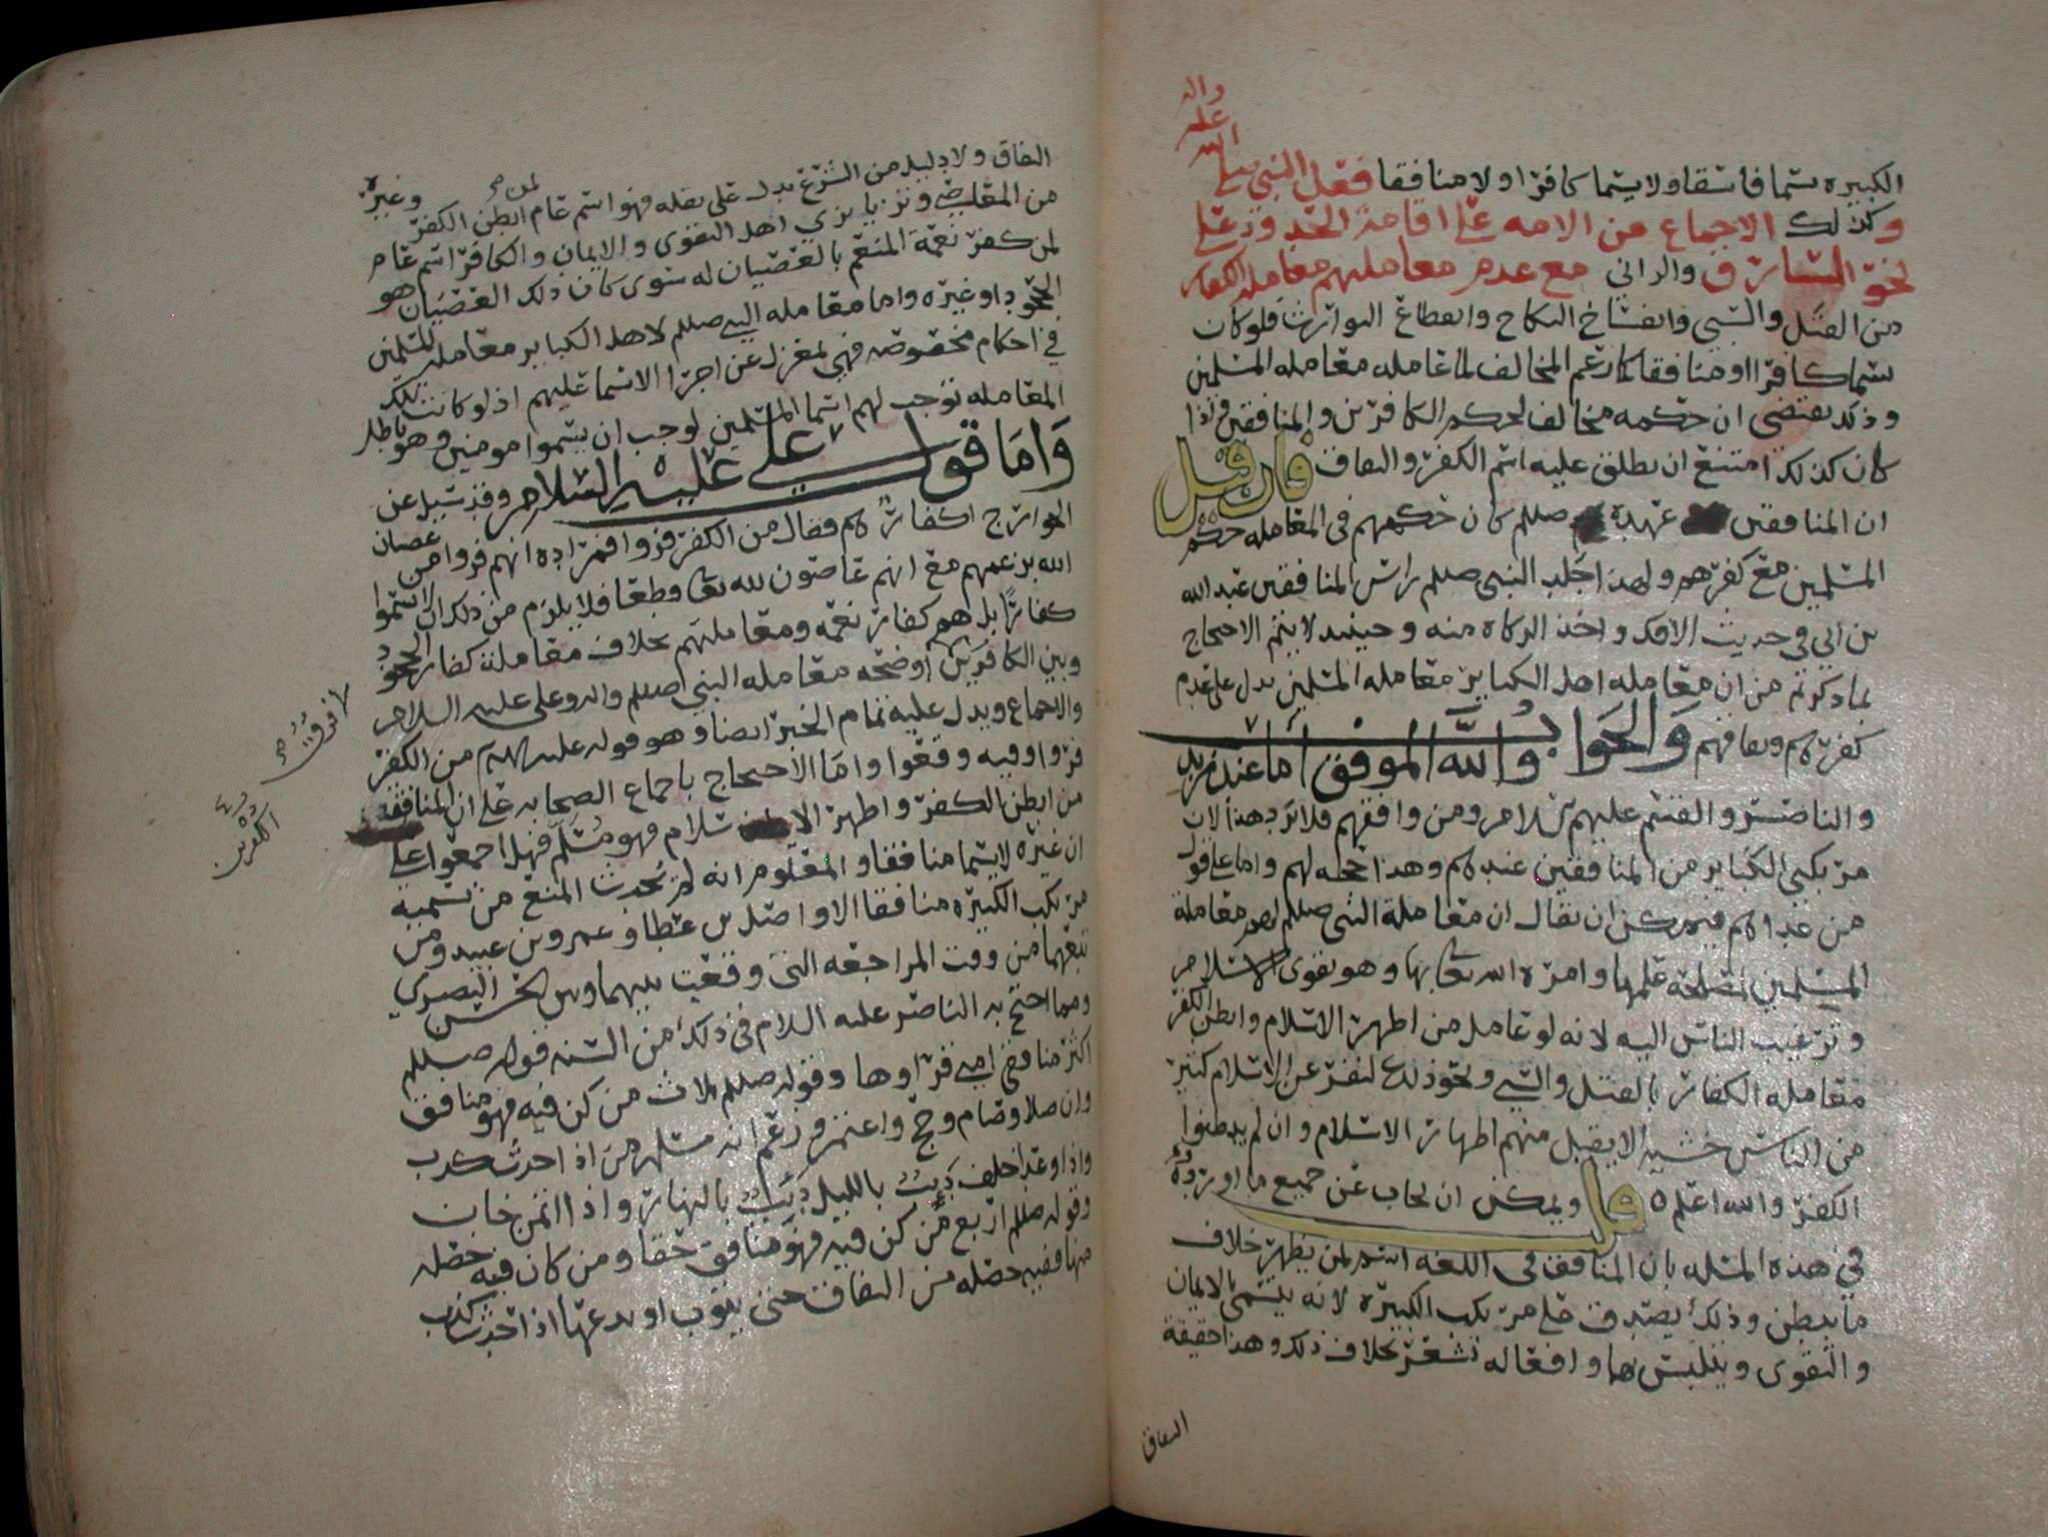 الكبيره يسما فاسقا ولا يسما كافرا ولا منافقا فعل النبي صلى
الله
عليه
واله
وكذلك الاجماع من الامه على اقامة الحد ود على
نحو السارق والزاني مع عدم معاملهم معاملة الكفار
من القتل والسبي وانفساخ النكاح وانقطاع التوارث فلو كان
يسما كافرا او منافقا كما زعم المخالف لما عامله معامله المسلمين
وذلك يقتضي ان حكمه مخالف لحكم الكافرين والمنافقين واذا
كان كذلك امتنع ان يطلق عليه اسم الكفر والنفاق فان قيل
ان المنافقين عهده صللم كان حكمهم في المعامله حكم
المسلمين مع كفرهم ولهذا جلد النبي صللم راس المنافقين عبد الله
بن ابي في حديث الافك واخذ الزكاه منه وحينيد لا يتم الاحتجاج
بما ذكرتم من ان معامله اهل الكباير معامله المسلمين يدل على عدم
كفرهم ونفاقهم والجواب والله الموفق اما عند زيد
والناصر والقسم عليهم السلام ومن وافقهم فلا يرد هذا لان
مرتكبي الكباير من المنافقين عندهم وهذا حجه لهم واما على قول
من عداهم فيمكن ان يقال ان معاملة النبي صللم لهم معاملة
المسلمين لمصلحة علمها وامره الله تعا بها وهو تقوى الاسلام
وترغيب الناس اليه لانه لو عامل من اظهر الاسلام وابطن الكفر
معامله الكفار بالقتل والسبي ونحو ذلك لنفر عن الاسلام كثير
من الناس خشية الا يقبل منهم اظهار الاسلام وان لم يبطنوا
الكفر والله اعلم ه قلت ويمكن ان يجاب عن جميع ما اوردوه
في هذه المسله بان المنافق في اللغه اسم لمن يظهر خلاف
ما يبطن وذلك يصدق على مرتكب الكبيره لانه يتسمى بالايمان
والتقوى ويتلبس بها وافعاله تشعر بخلاف ذلك وهذا حقيقة
النفاق
النفاق ولا دليل من الشرع يدل على نقله فهو اسم عام لمن ابطن الكفر وغيره
من المعاصي وتزيا بزي اهل التقوى والايمان والكافر اسم عام
لمن كفر نعمة المنعم بالعصيان له سوى كان ذلك العصيان هو
الجحود او غيره واما معامله النبي صللم لاهل الكباير معامله المسلمين
في احكام مخصوصه فهي بمعزل عن اجرا الاسما عليهم اذ لو كانت تلك
المعامله توجب لهم اسما المسلمين لوجب ان يسموا مومنين وهو باطل
واما قول علي عليه السلام وقد سيل عن
الخوارج اكفار هم فقال من الكفر فروا فمراده انهم فروا من عصيان
الله بزعمهم مع انهم عاصون لله تعا قطعا فلا يلزم من ذلك ان لا يسموا
كفارا بل هم كفار نعمه ومعاملتهم بخلاف معاملة كفار الجحود
وبين الكافرين اوضحه معامله النبي صللم واله وعلي عليه السلام
والاجماع ويدل عليه تمام الخبر ايضا وهو قوله عليه السلم من الكفر
فروا وفيه وقعوا واما الاحتجاج باجماع الصحابه على ان المنافق
من ابطن الكفر واظهر الاسلام فهو مسلم فهل اجمعوا على
ان غيره لا يسما منافقا والمعلوم انه لم يحدث المنع من تسميه
مرتكب الكبيره منافقا الا واصل بن عطا وعمرو بن عبيد ومن
تبعهما من وقت المراجعه التي وقعت بينهما وبين الحسن البصري
ومما احتج به الناصر عليه السلام في ذلك من السنه قوله صللم
اكثر منافقي امتي قراوها وقوله صللم ثلاث من كن فيه فهو منافق
وان صلا وصام وحج واعتمر وزعم انه مسلم من اذا احدث كذب
واذا وعد اخلف ذيب بالليل ذيب بالنهار واذا اتمن خان
وقوله صللم اربع من كن فيه فهو منافق حقا ومن كان فيه خصله
منها ففيه خصله من النفاق حتى يتوب او يدعها اذا احدث كذب
الفرق
الكفرين